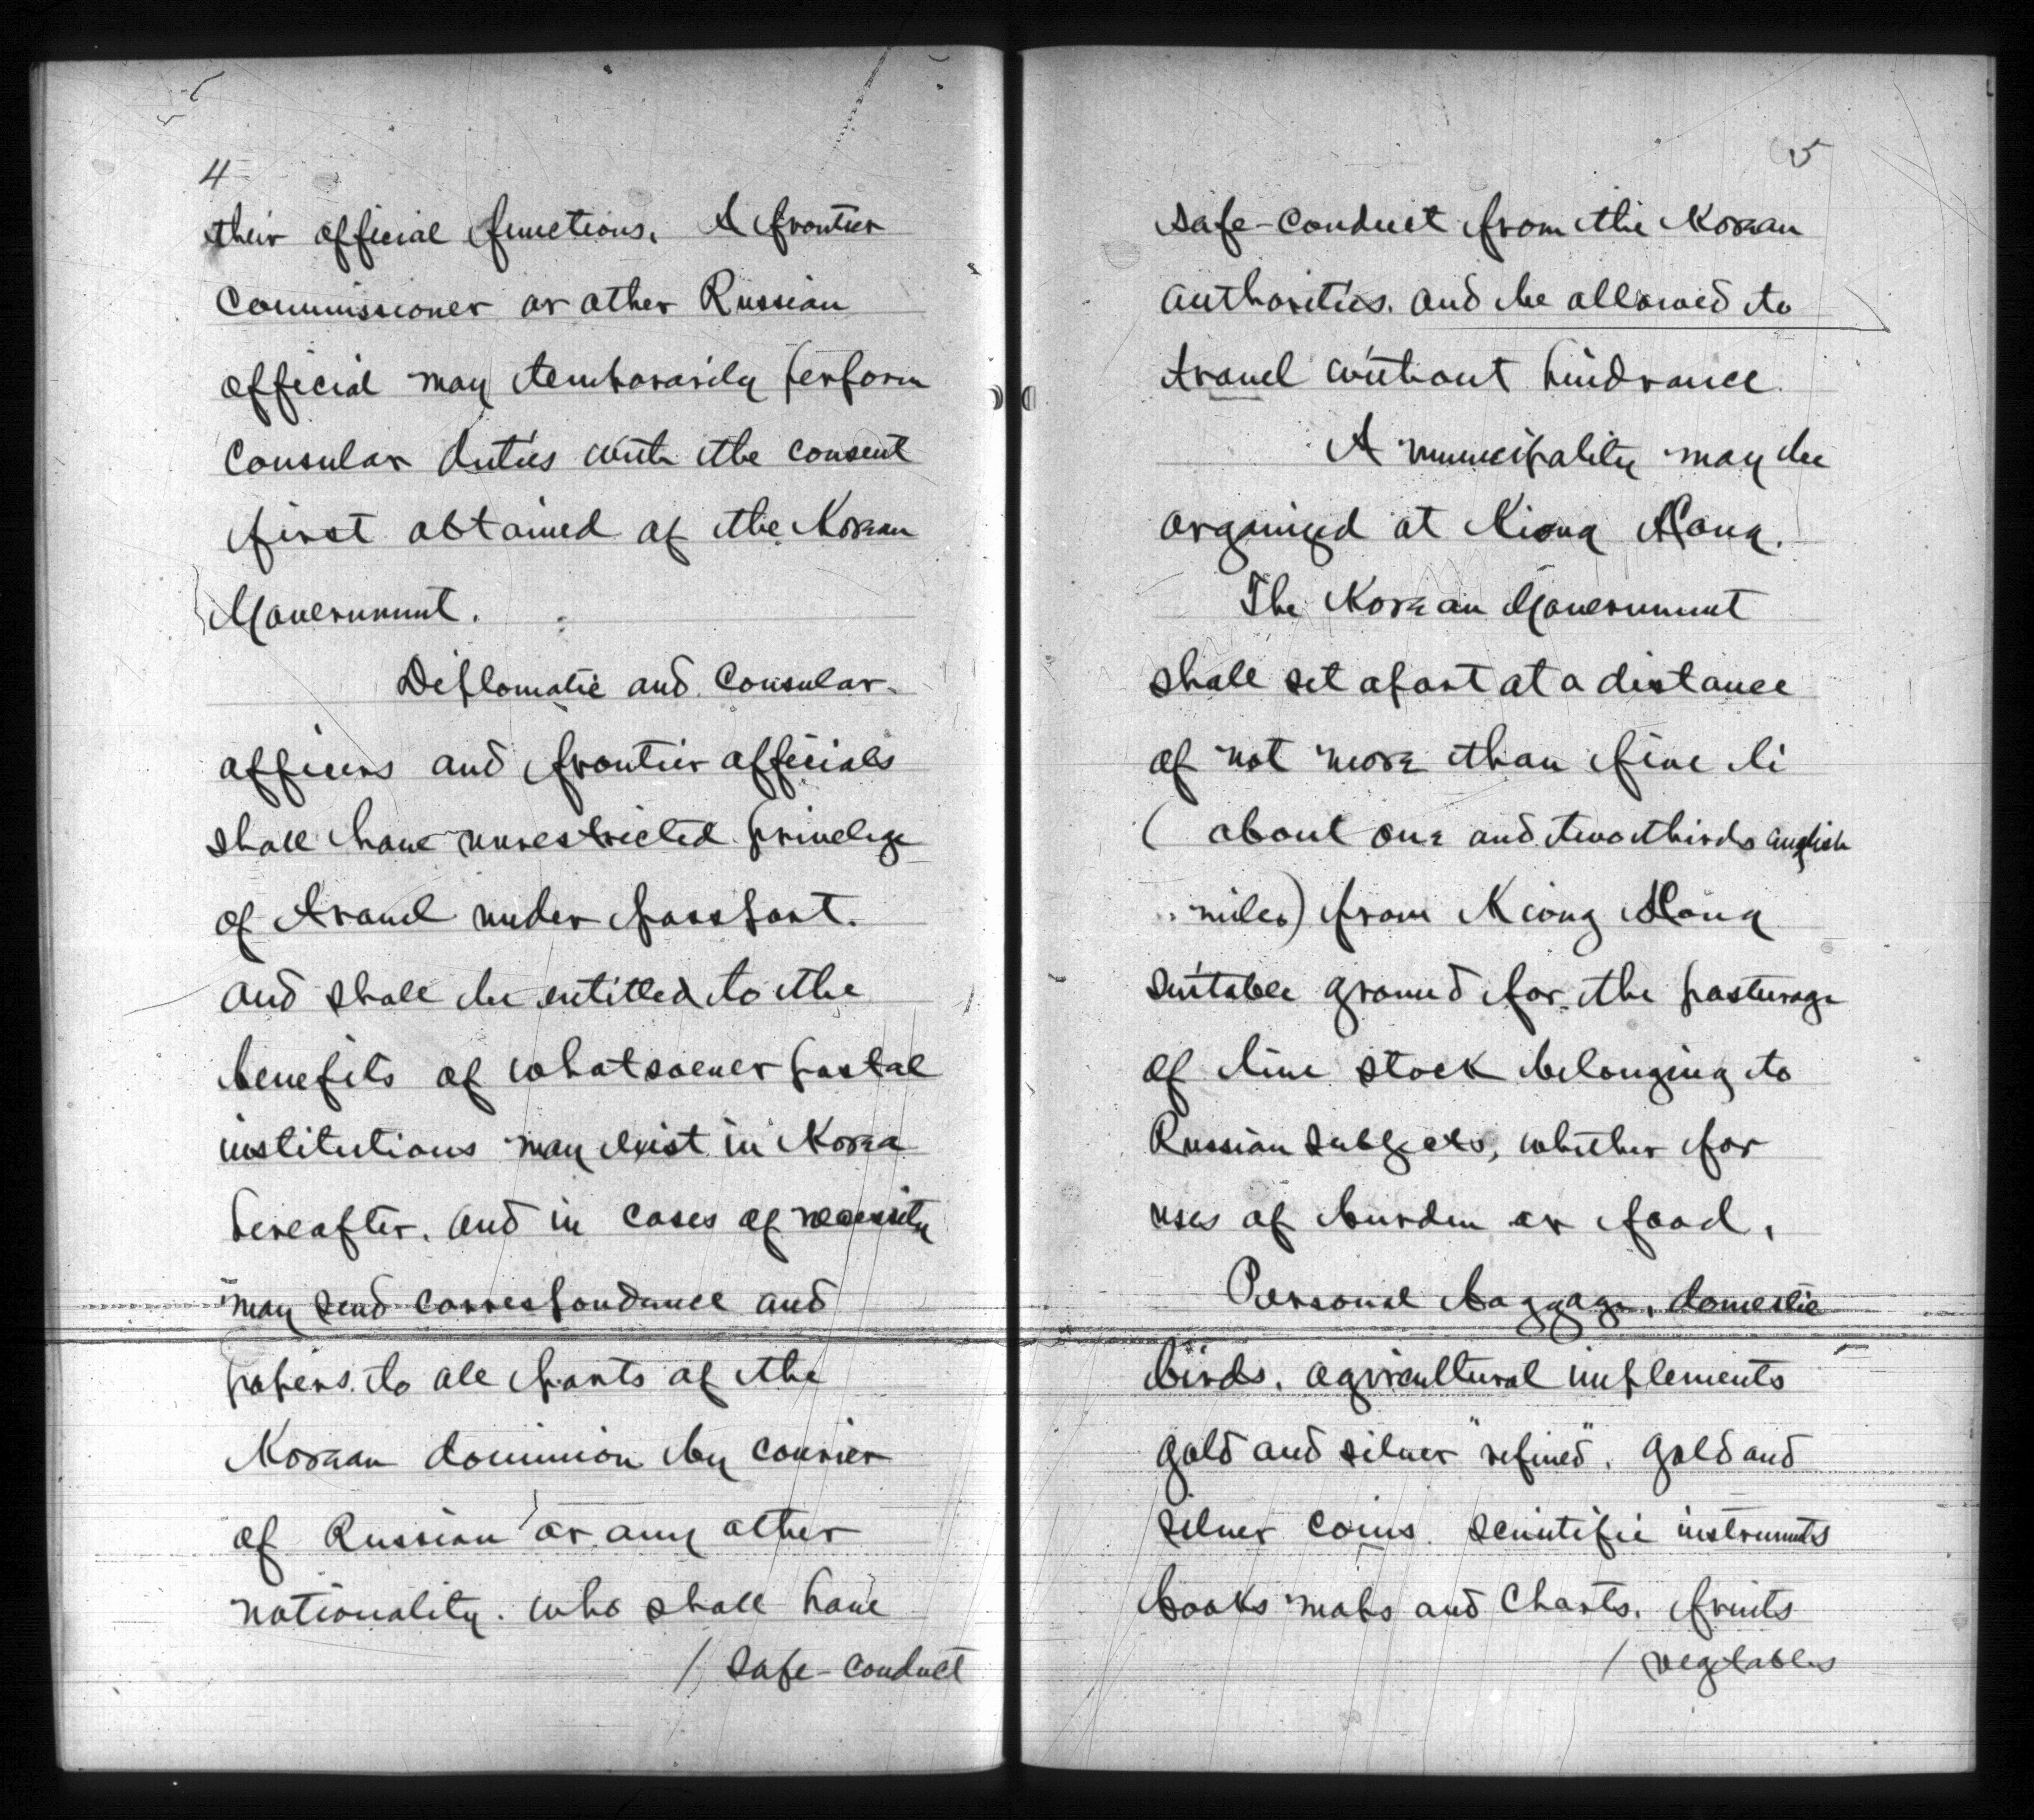 4
their official functions. A frontier
Commissioner or other Russian
official may temporarily perform
Consular duties with the consent
first obtained of the Korean
Government.
Diplomatic and Consular
officers and frontier officials
shall have unrestricted privelege
of travel under passport.
and shall be entitled to the
benefits of whatsoever postal
institutions may exist in Korea
hereafter. and in cases of necessity
may send correspondance and
papers to all parts of the
Korean dominion by courier
of Russian or any other
nationality. who shall have
/ safe-conduct
5
safe-conduct from the Korean
authorities. and be allowed to
travel without hindrance
A municipality may be
organized at Kiong Hong.
The Korean Government
shall set apart at a distance
of not more than five li
( about one and two thirds english
miles) from Kiong Hong
suitable ground for the pasturage
of live stock belonging to
Russian subjects, whether for
uses of burden or food.
Personal baggage, domestic
birds. agricultural implements
gold and silver "refined". gold and
silver coins. scientific instruments
books maps and charts. fruits
/ vegetables